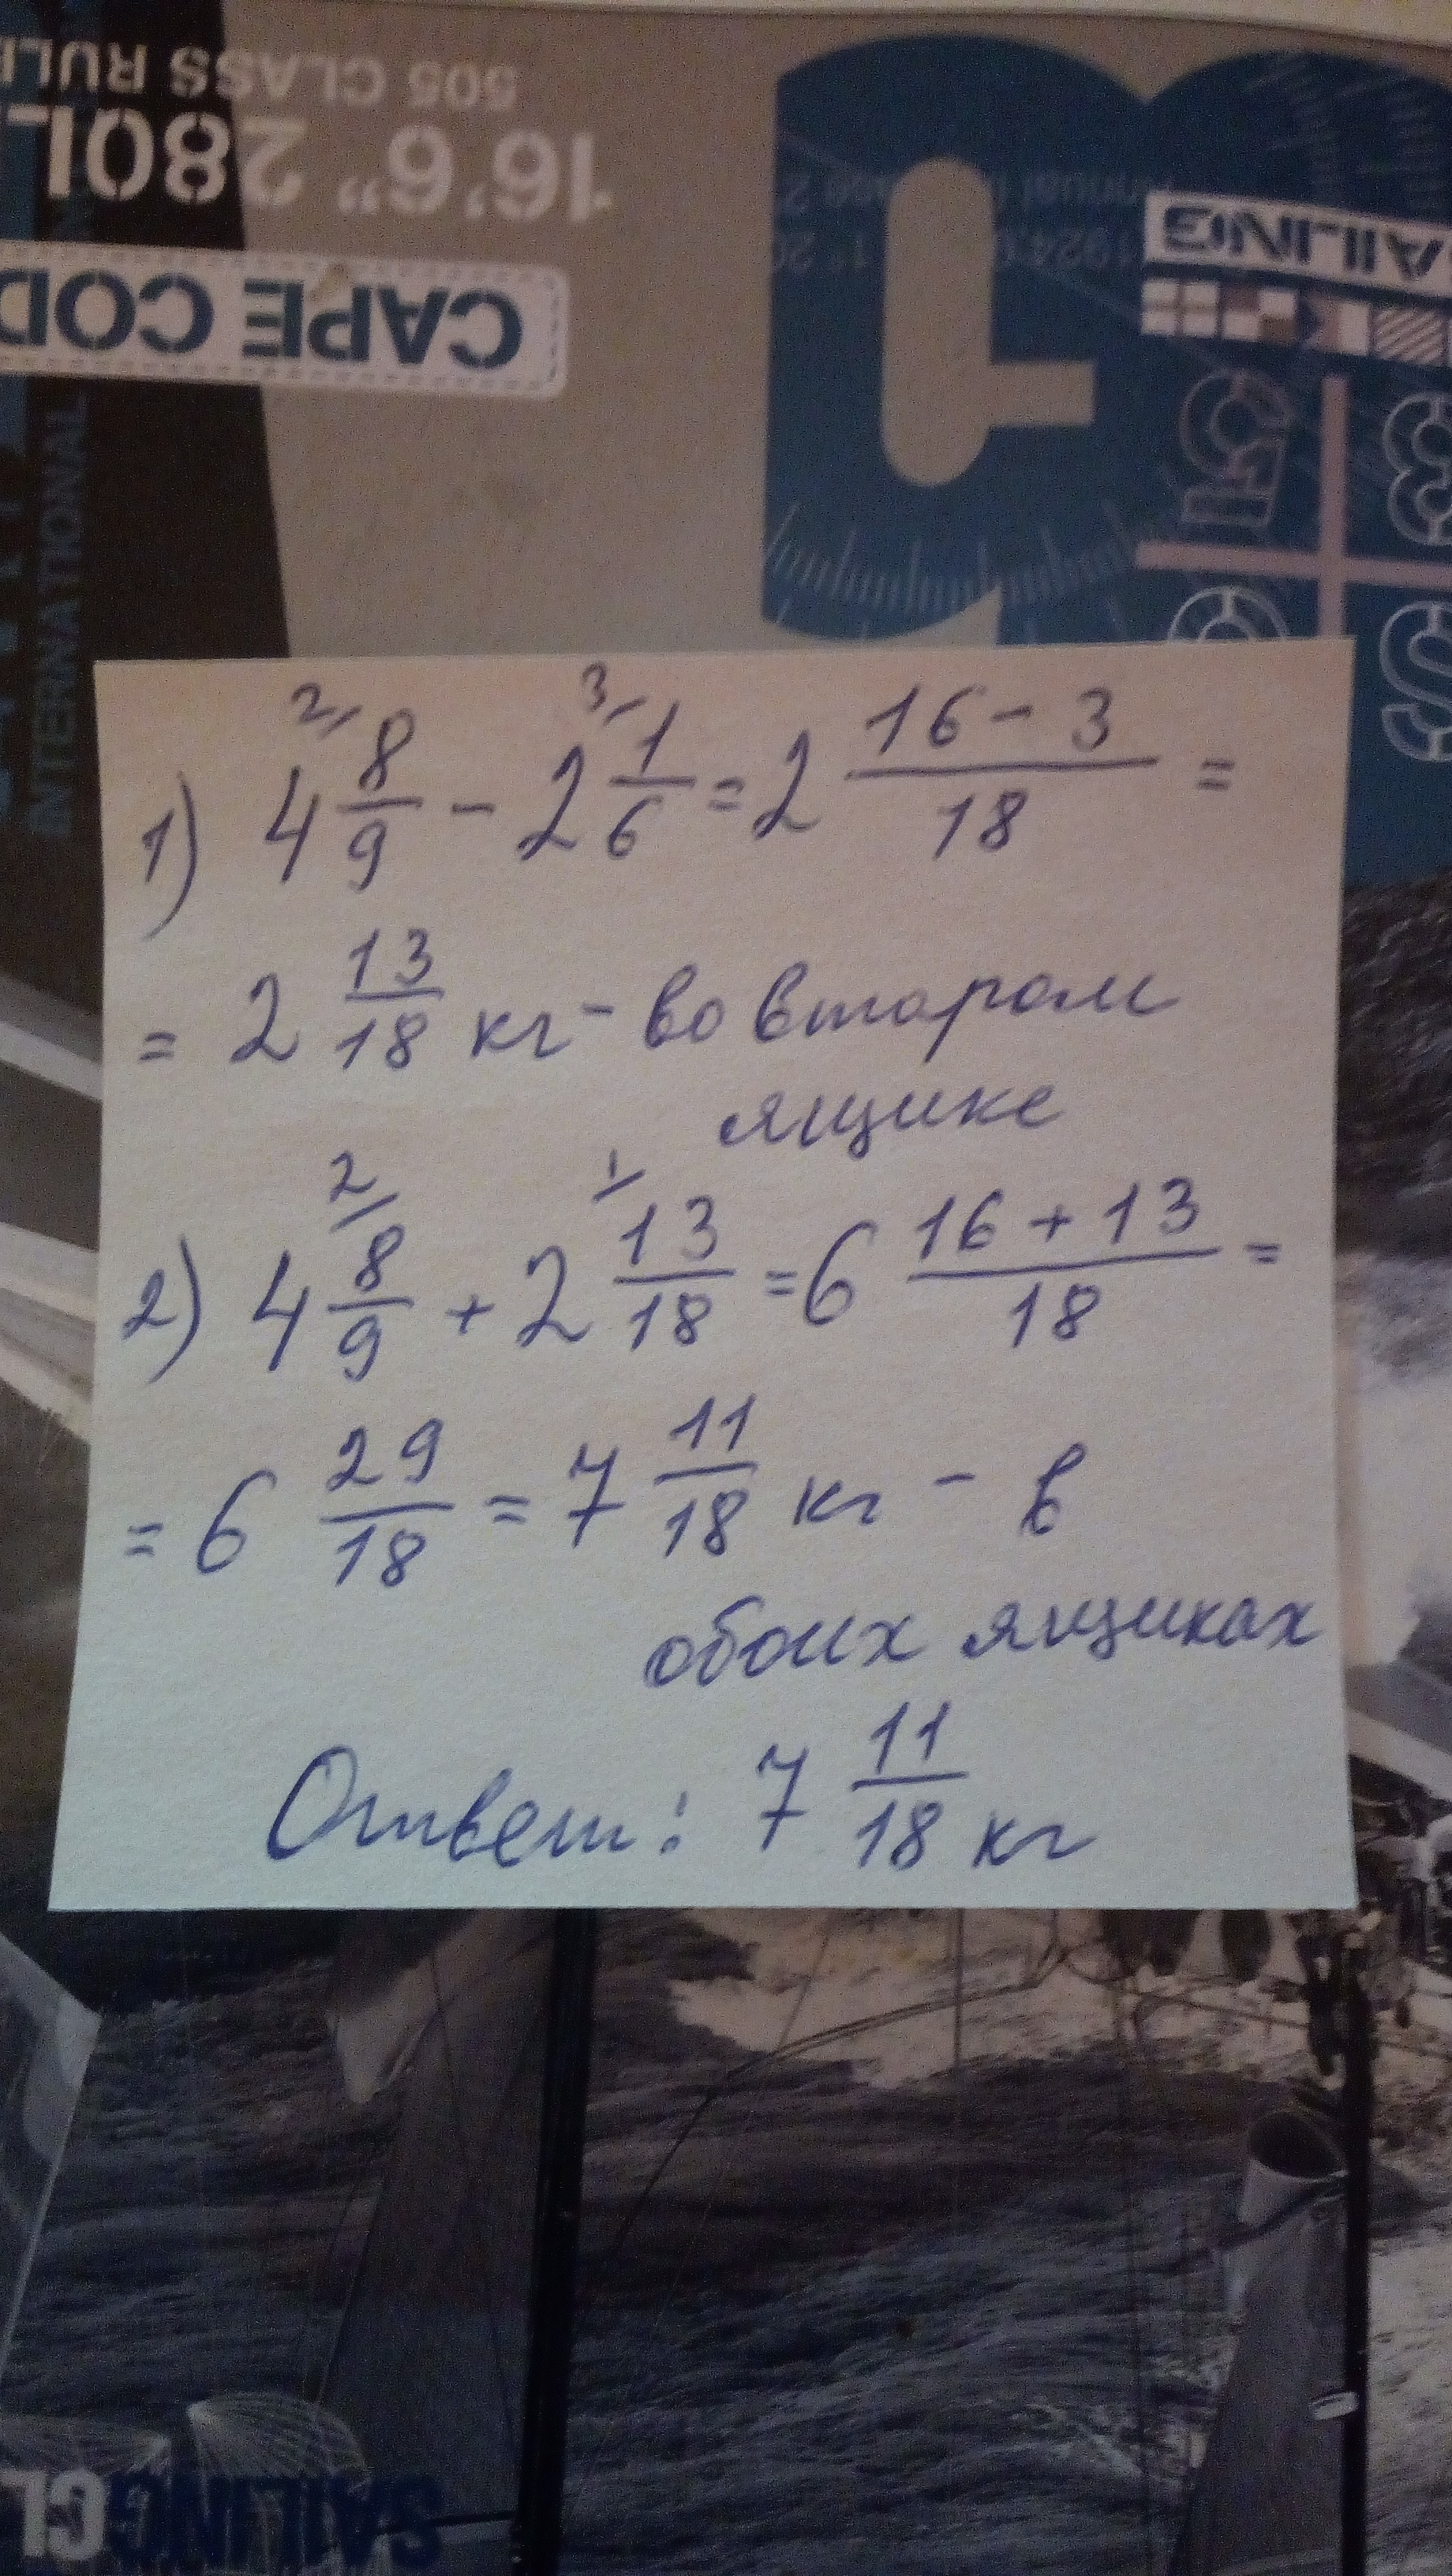 505 CLASS RULI
16'6" 280L
CAPE COD
INTERNATIONAL
AILING
1) 4 2/ 8/9 - 2 3/ 1/6 = 2 (16 - 3)/18 =
= 2 13/18 кг - во втором
ящике
2) 4 2/ 8/9 + 2 1/ 13/18 = 6 (16 + 13)/18 =
= 6 29/18 = 7 11/18 кг - в
обоих ящиках
Ответ: 7 11/18 кг
SAILING CL